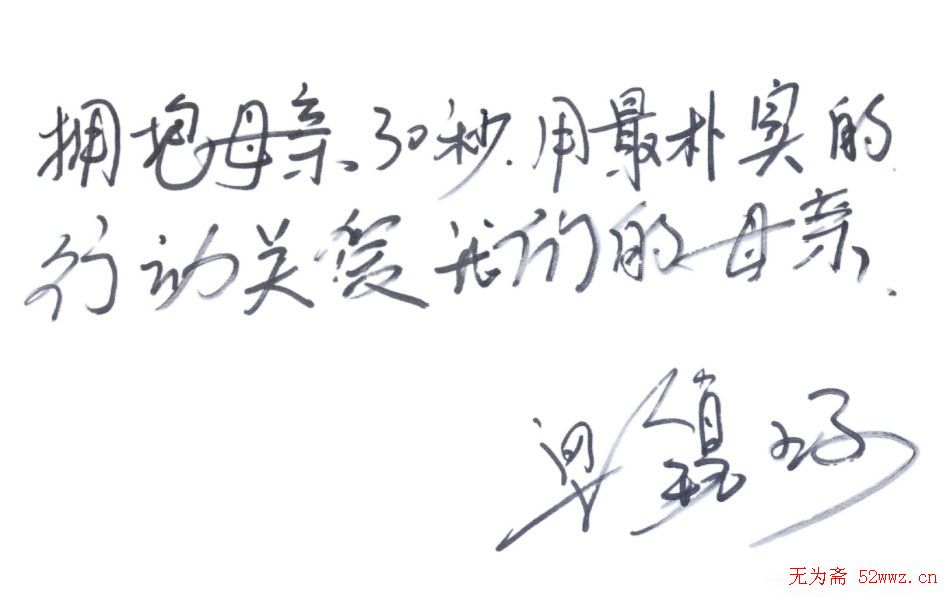 拥抱母亲30秒.用最朴实的
行动关爱我们的母亲.
无为斋 52wwz.cn